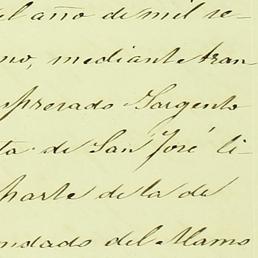 el año de mil se-
mo, mediante tran-
presado Sargento
ta de San José li-
parte de la de
ndado del Alamo